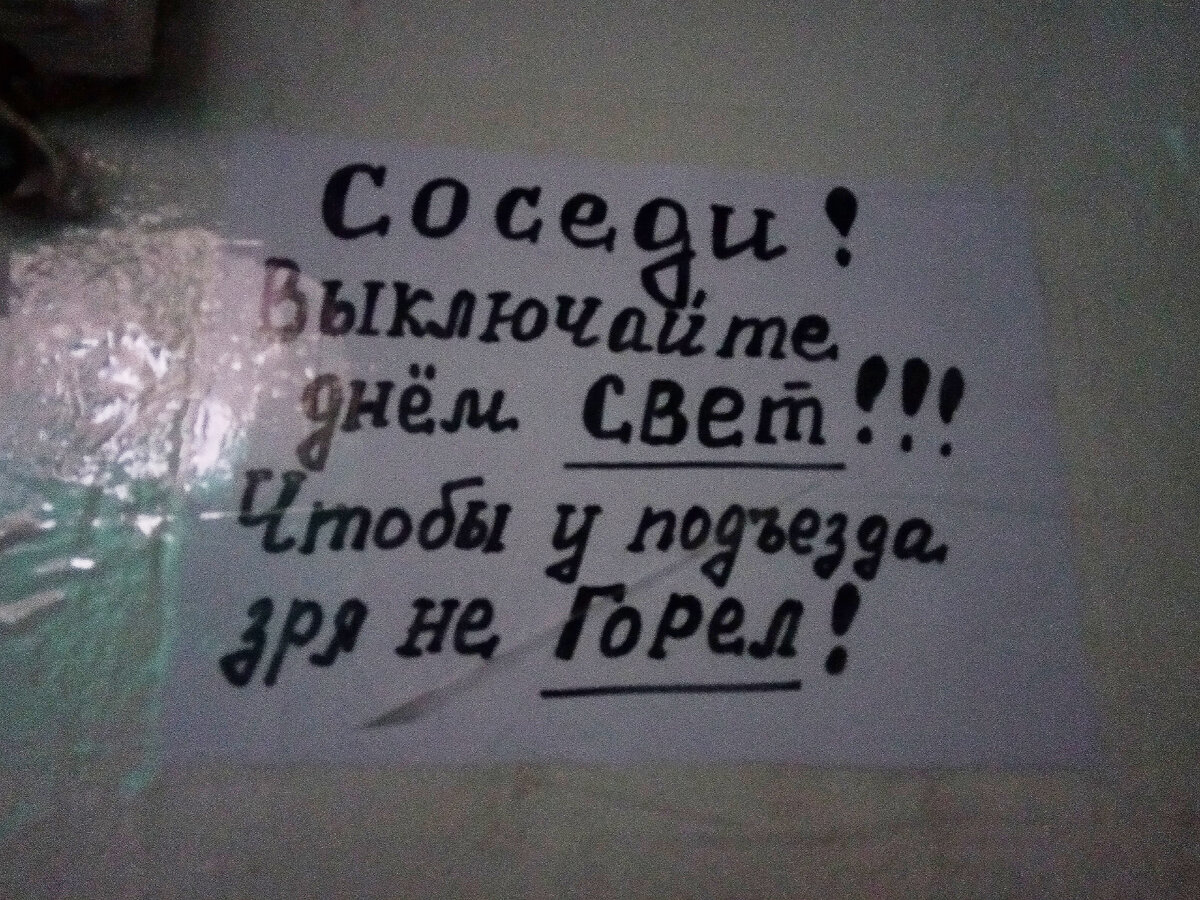 Соседи!
Выключайте
днём свет!!!
Чтобы у подъезда
зря не Горел!